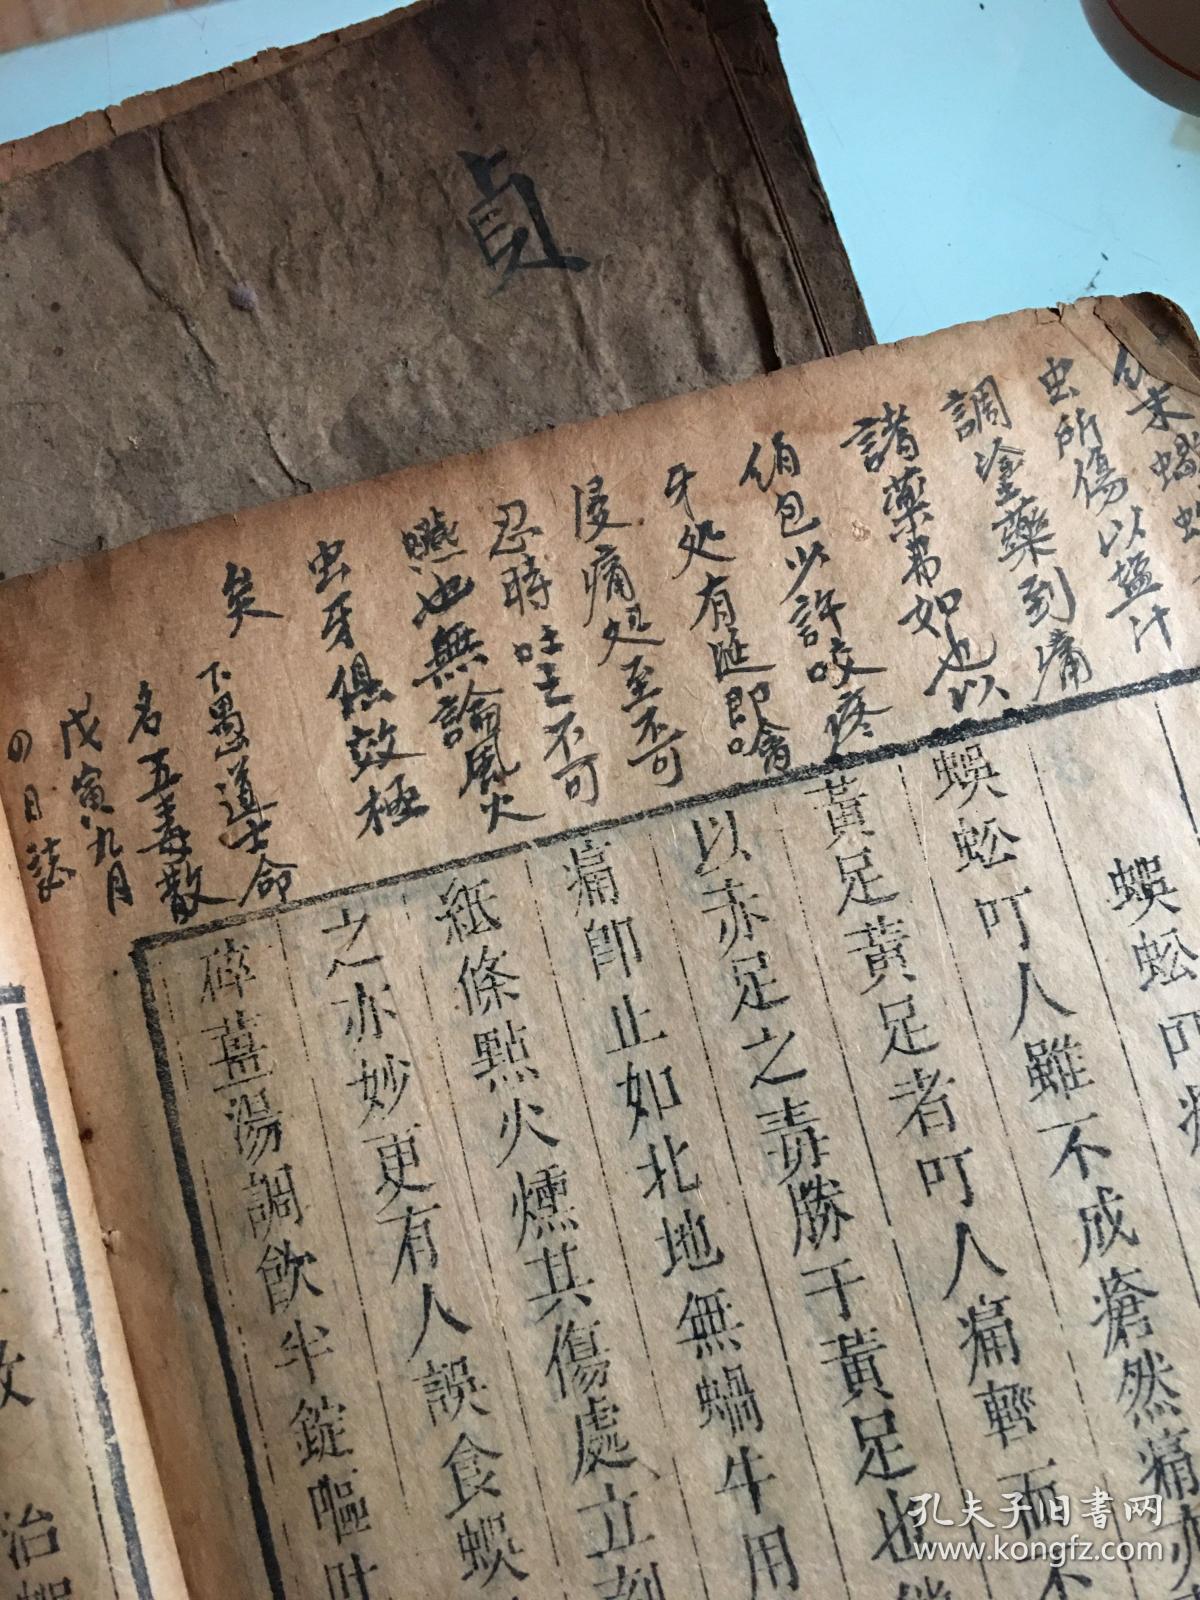 貞
虫所傷以盐汁
調塗藥到痛
諸藥弗如也以
絹包少許咬疼
牙处有涎即
浸痛处至不可
忍時吐之不可
嚥也無論風火
虫牙俱效極
矣
下愚道士命
名五毒散
戊寅九月
日誌
蜈蚣叮
蜈蚣叮人雖不成瘡然痛
黃足黃足者叮人痛輕而不
以赤足之毒勝于黃足也
痛即止如北地無蝸牛用
紙條點火燻其傷處立刻
之亦妙更有人誤食蜈
薑湯調飲半錠嘔吐
治
孔夫子旧書网
www.kongfz.com